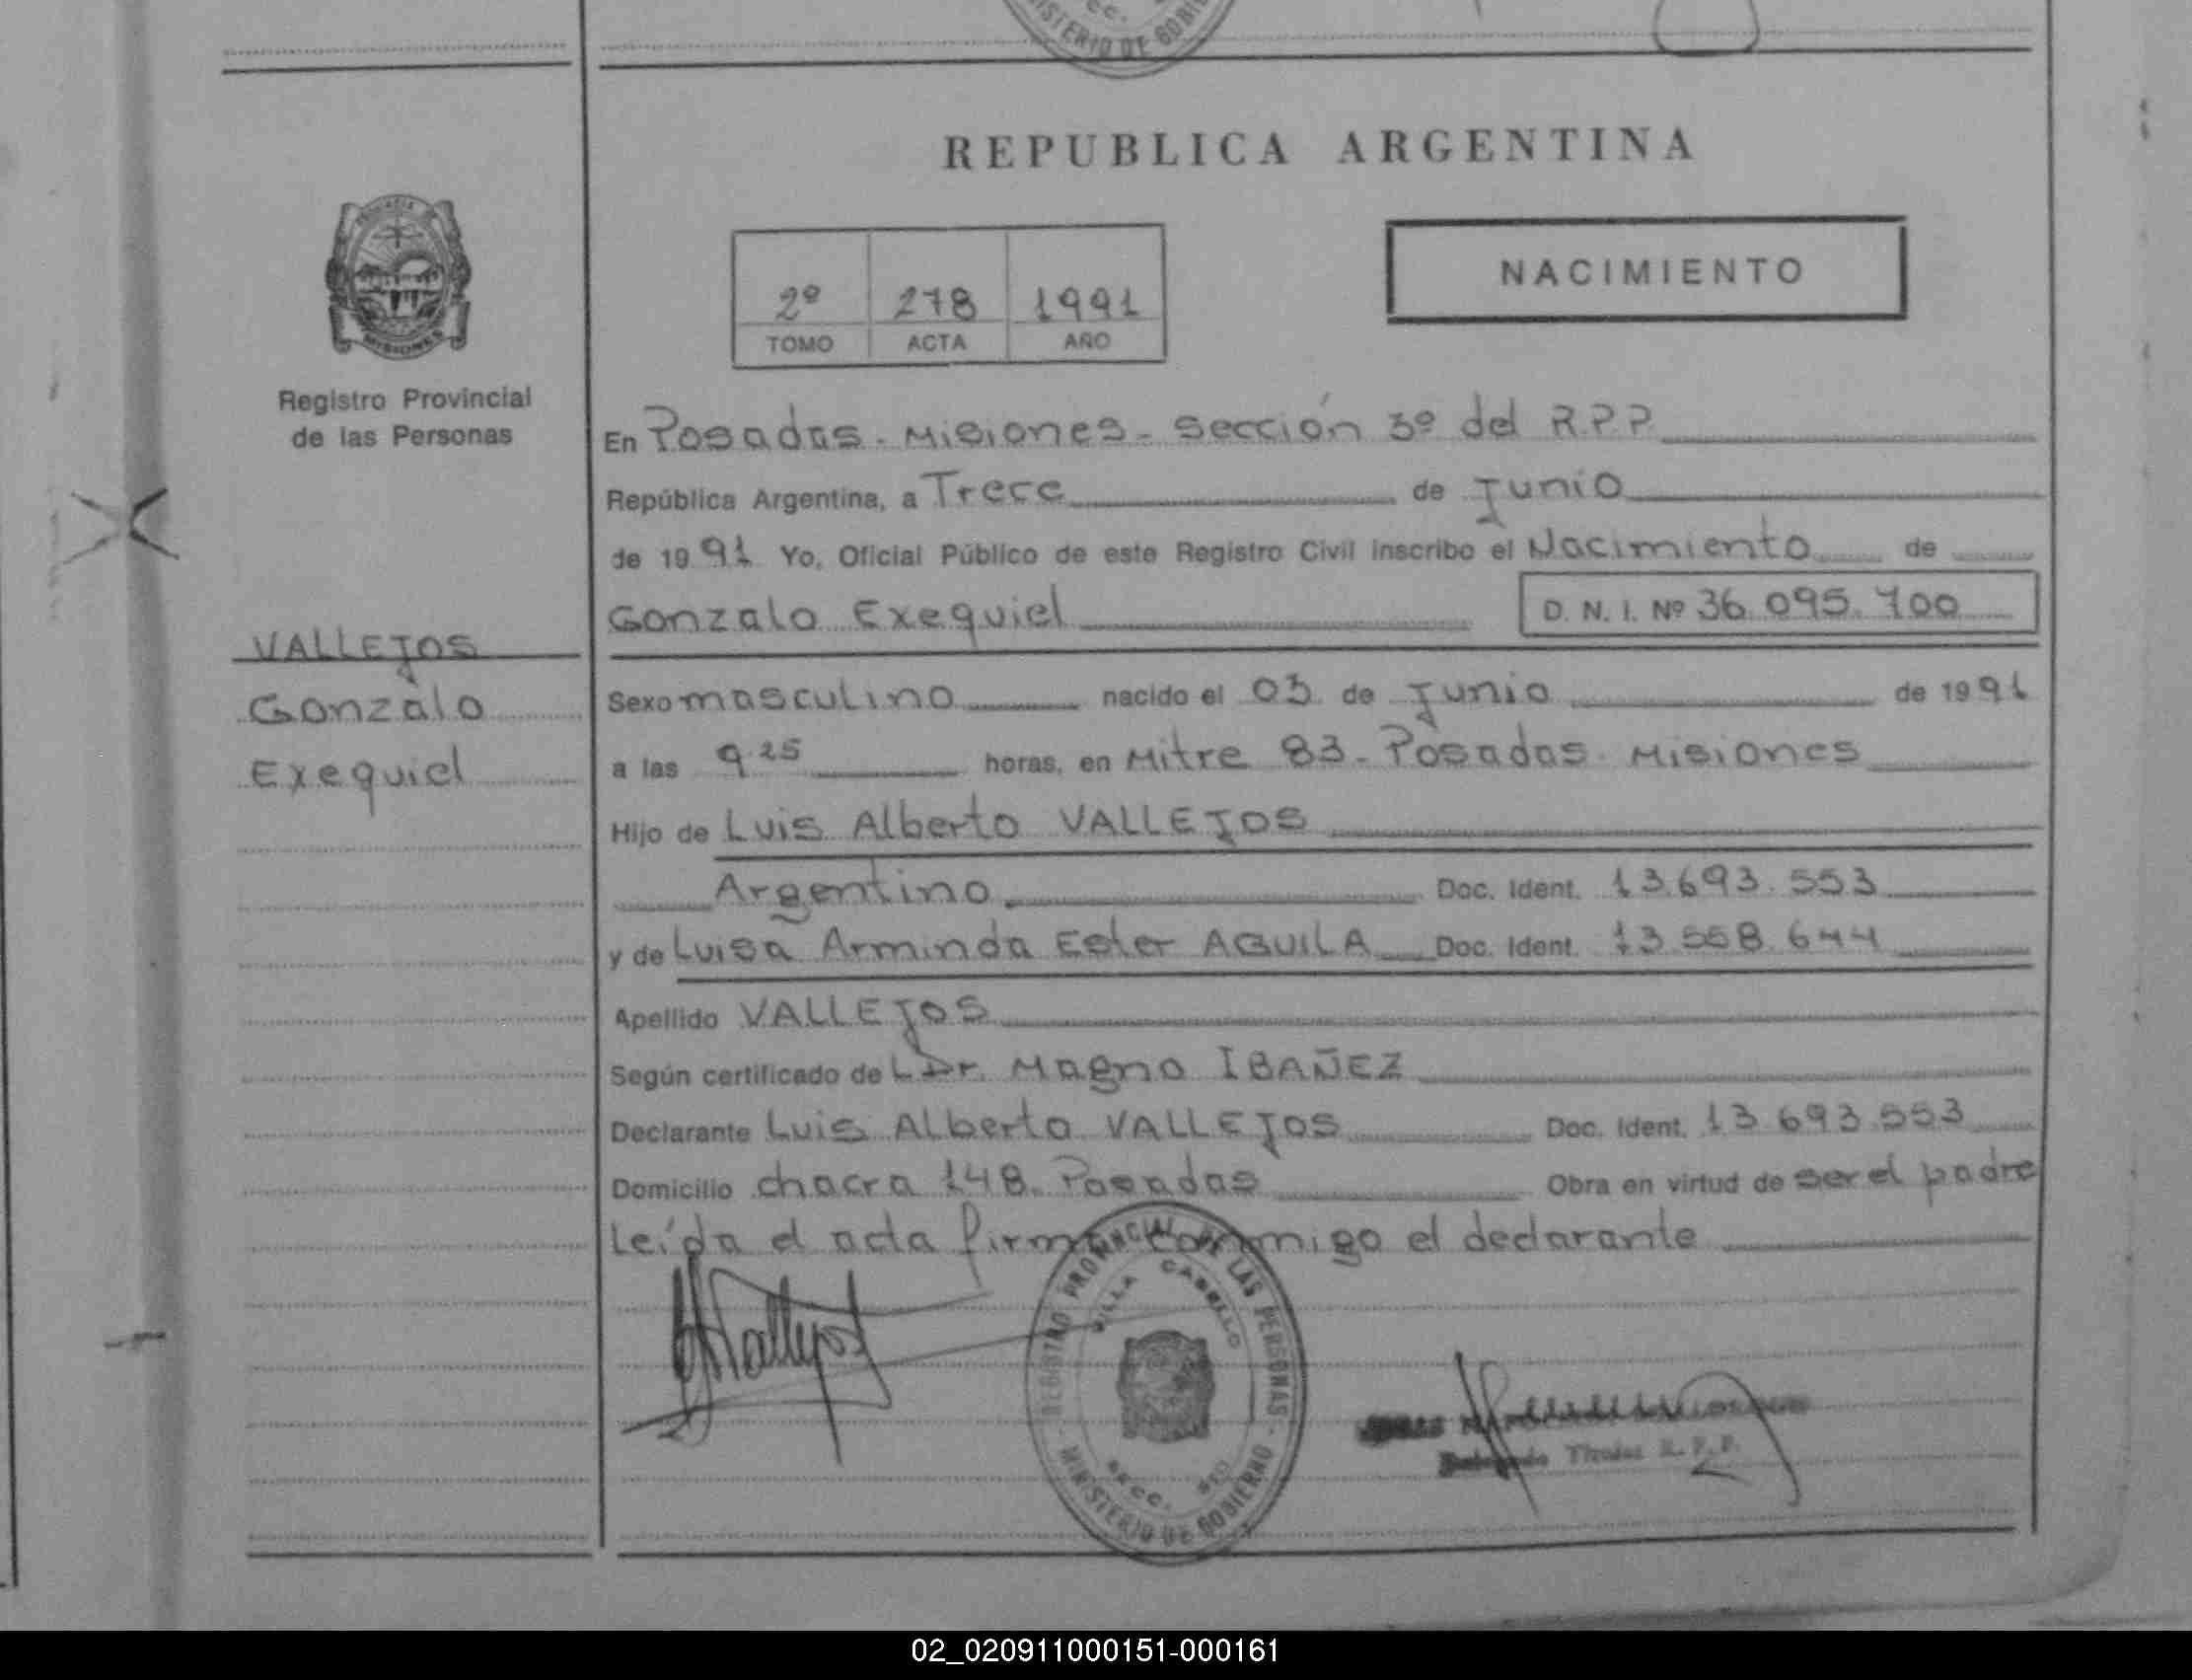 MINISTERIO DE GOBIE
REPUBLICA ARGENTINA
NACIMIENTO
2º 278 1991
TOMO ACTA AÑO
MISIONES
Registro Provincial
de las Personas
VALLEJOS
Gonzalo
Exequiel
En Posadas - Misiones - Sección 3º del R.P.P.
República Argentina, a Trece de Junio
de 1991 Yo, Oficial Público de este Registro Civil inscribo el Nacimiento de
Gonzalo Exequiel D. N. I. Nº 36.095.700
Sexo masculino nacido el 03 de Junio de 1991
a las 9.25 horas, en Mitre 83 - Posadas - Misiones
Hijo de Luis Alberto VALLEJOS
Argentino Doc. Ident. 13.693.553
y de Luisa Arminda Ester AGUILA Doc. Ident. 13.558.644
Apellido VALLEJOS
Según certificado de L Dr. Magno IBAÑEZ
Declarante Luis Alberto VALLEJOS Doc. Ident. 13.693.553
Domicilio chacra 148. Posadas Obra en virtud de ser el padre
Leída el acta firma conmigo el declarante
Vallejos
REGISTRO PROVINCIAL DE LAS PERSONAS
VILLA CABELLO
SECC.
MINISTERIO DE GOBIERNO
Titular R.P.P.
02_020911000151-000161